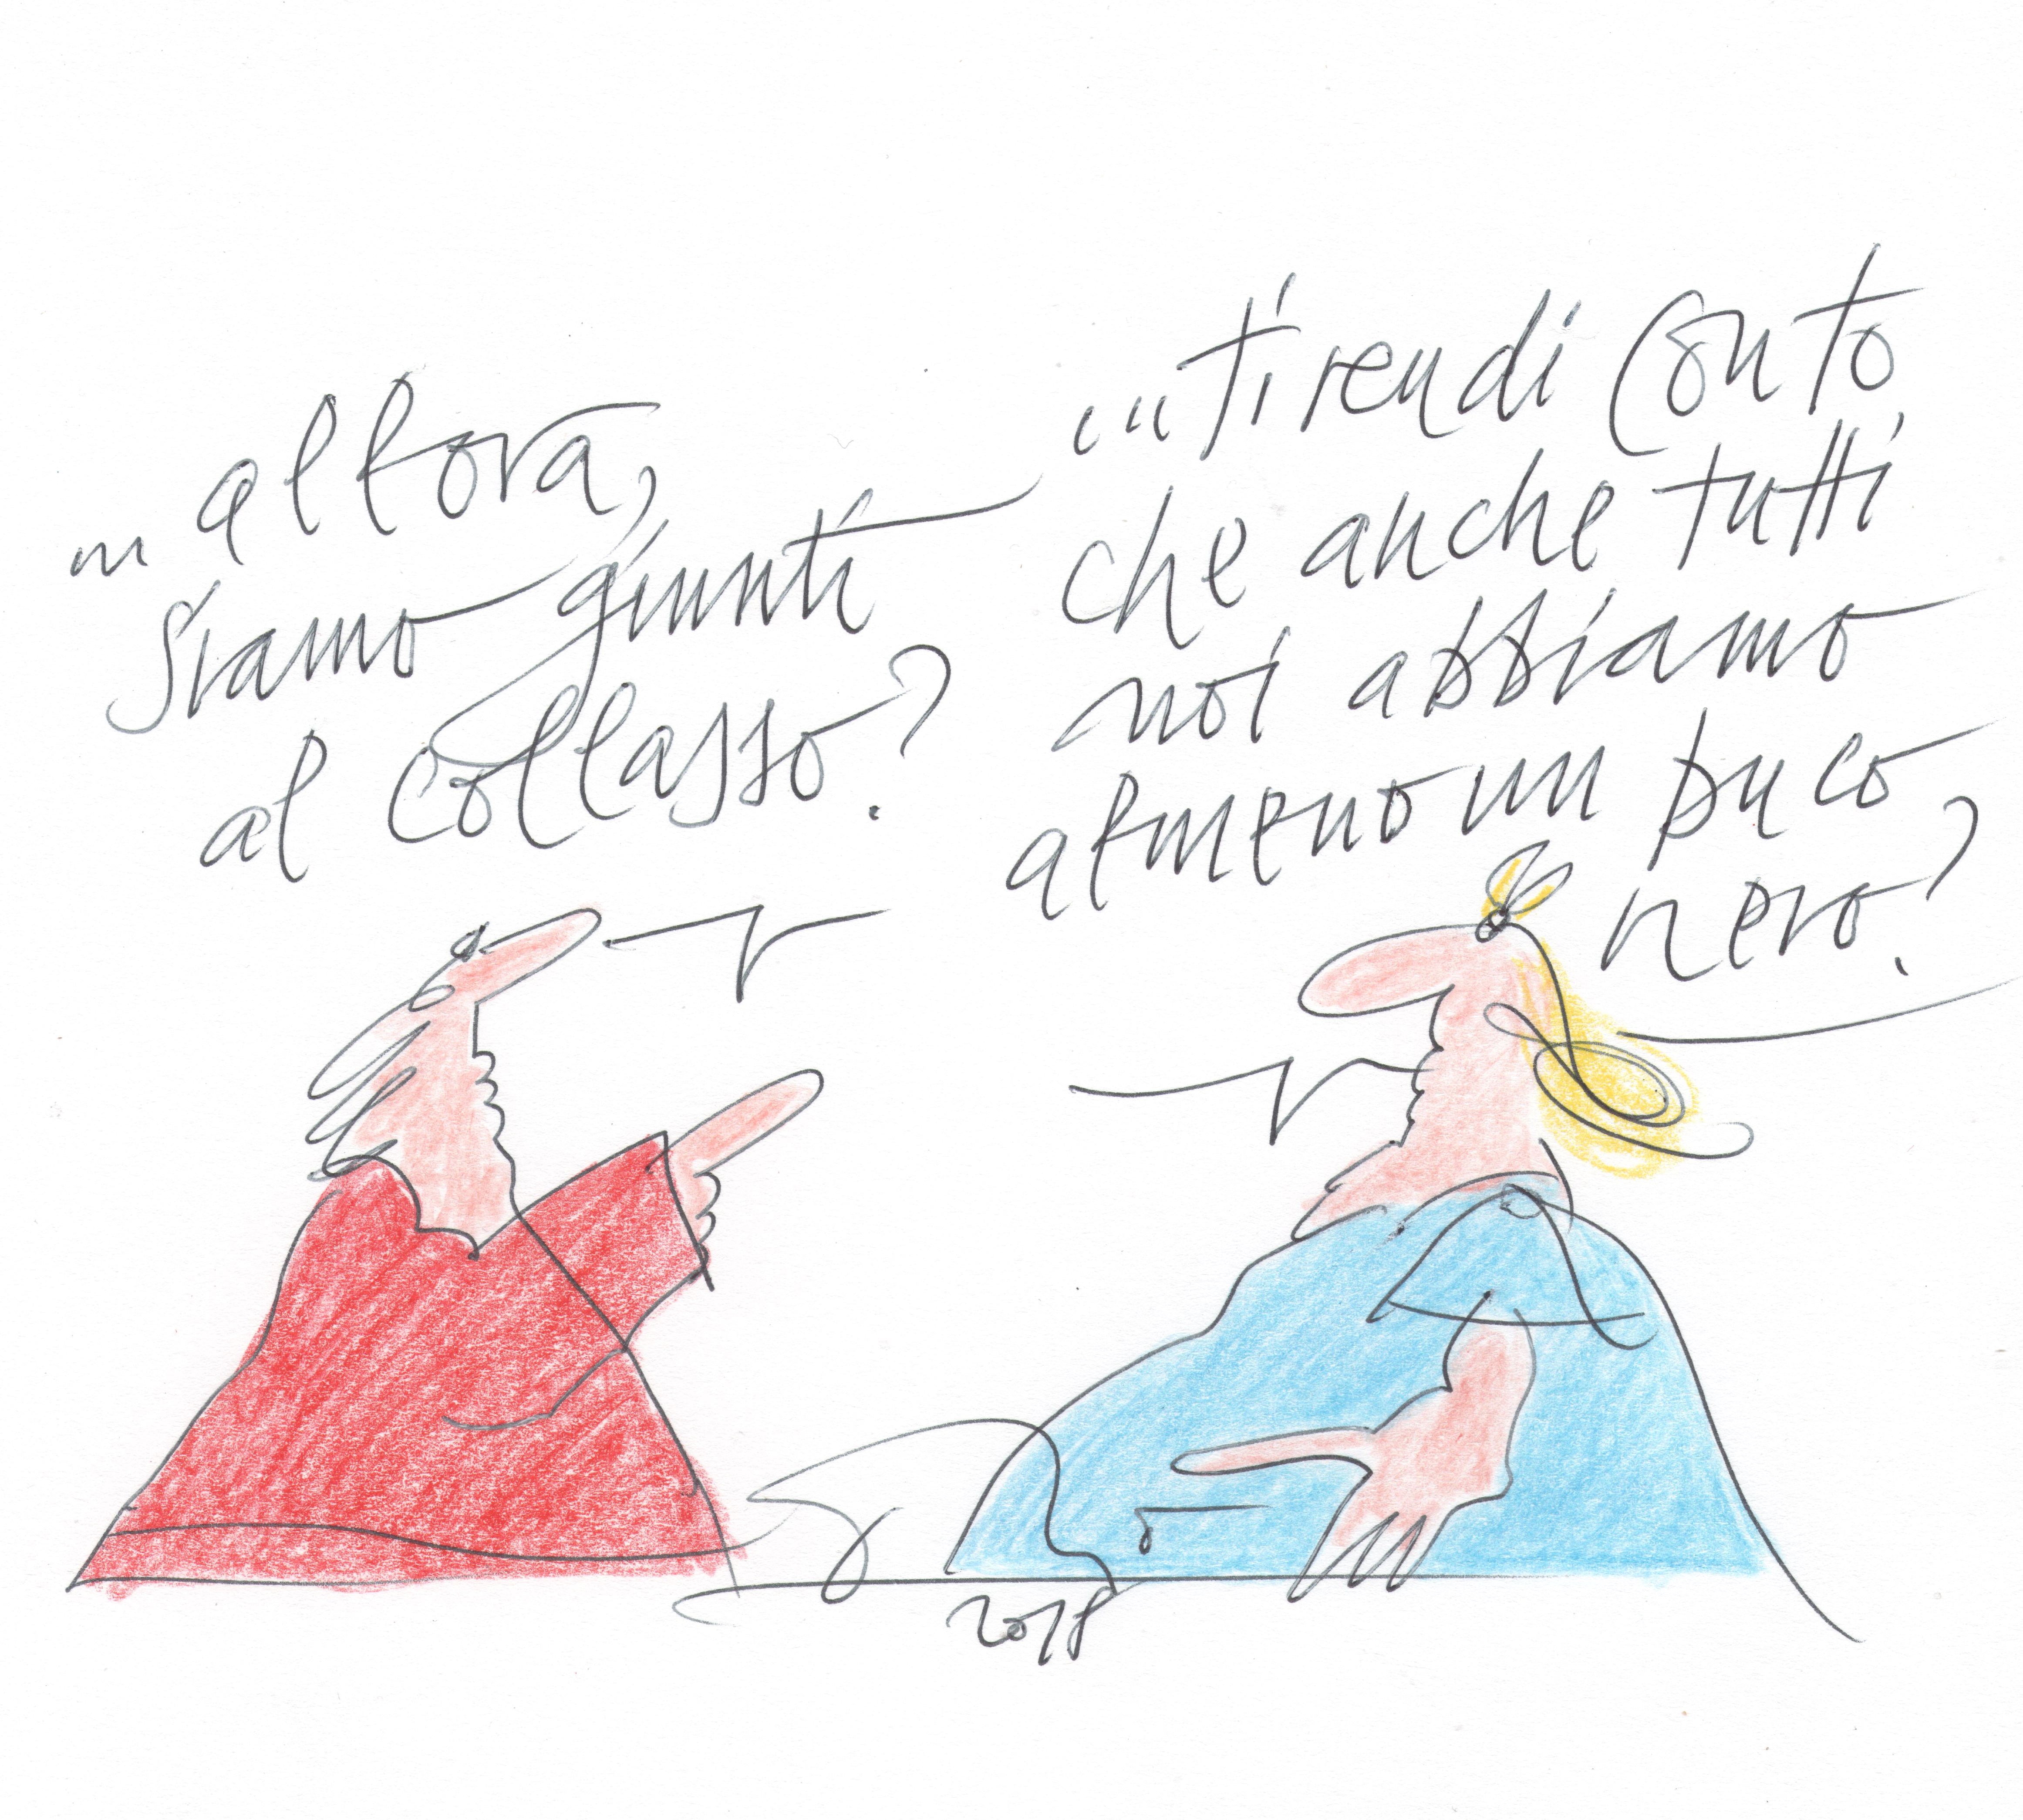 ... allora,
siamo giunti
al collasso?
... ti rendi conto
che anche tutti
noi abbiamo
almeno un buco
nero?
2018